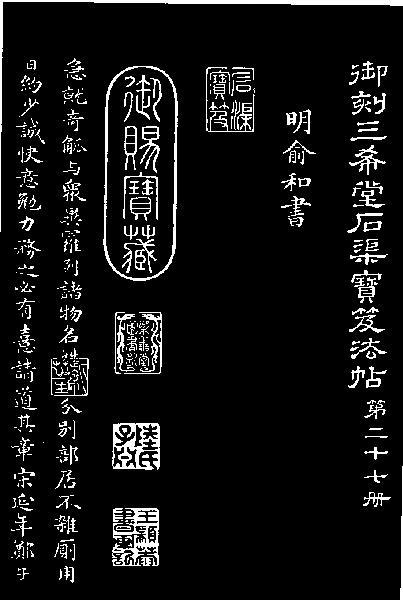 御刻三希堂石渠寶笈法帖第二十七册
明俞和書
石渠寶笈
御賜寶藏
急就奇觚与衆異羅列諸物名姓字分別部居不雜廁用
日約少誠快意勉力務之必有憙請道其章宋延年鄭子